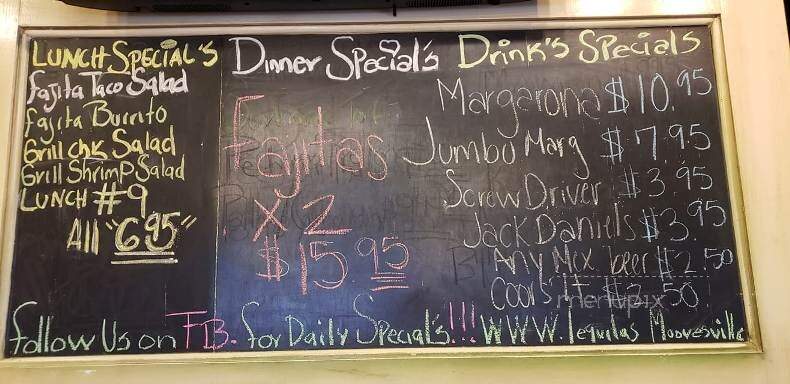 LUNCH SPECIAL'S
fajita Taco Salad
fajita Burrito
Grill chk Salad
Grill Shrimp Salad
LUNCH #9
All "6.95"
Dinner Special's
Fajitas
X 2
$15.95
Drink's Specials
Margarona $10.95
Jumbo Marg $7.95
Screw Driver $3.95
Jack Daniels $3.95
Any Mex. beer $2.50
Coors LT
menupix
follow Us on FB. for Daily Special's!!! WWW.Tequilas Mooresville